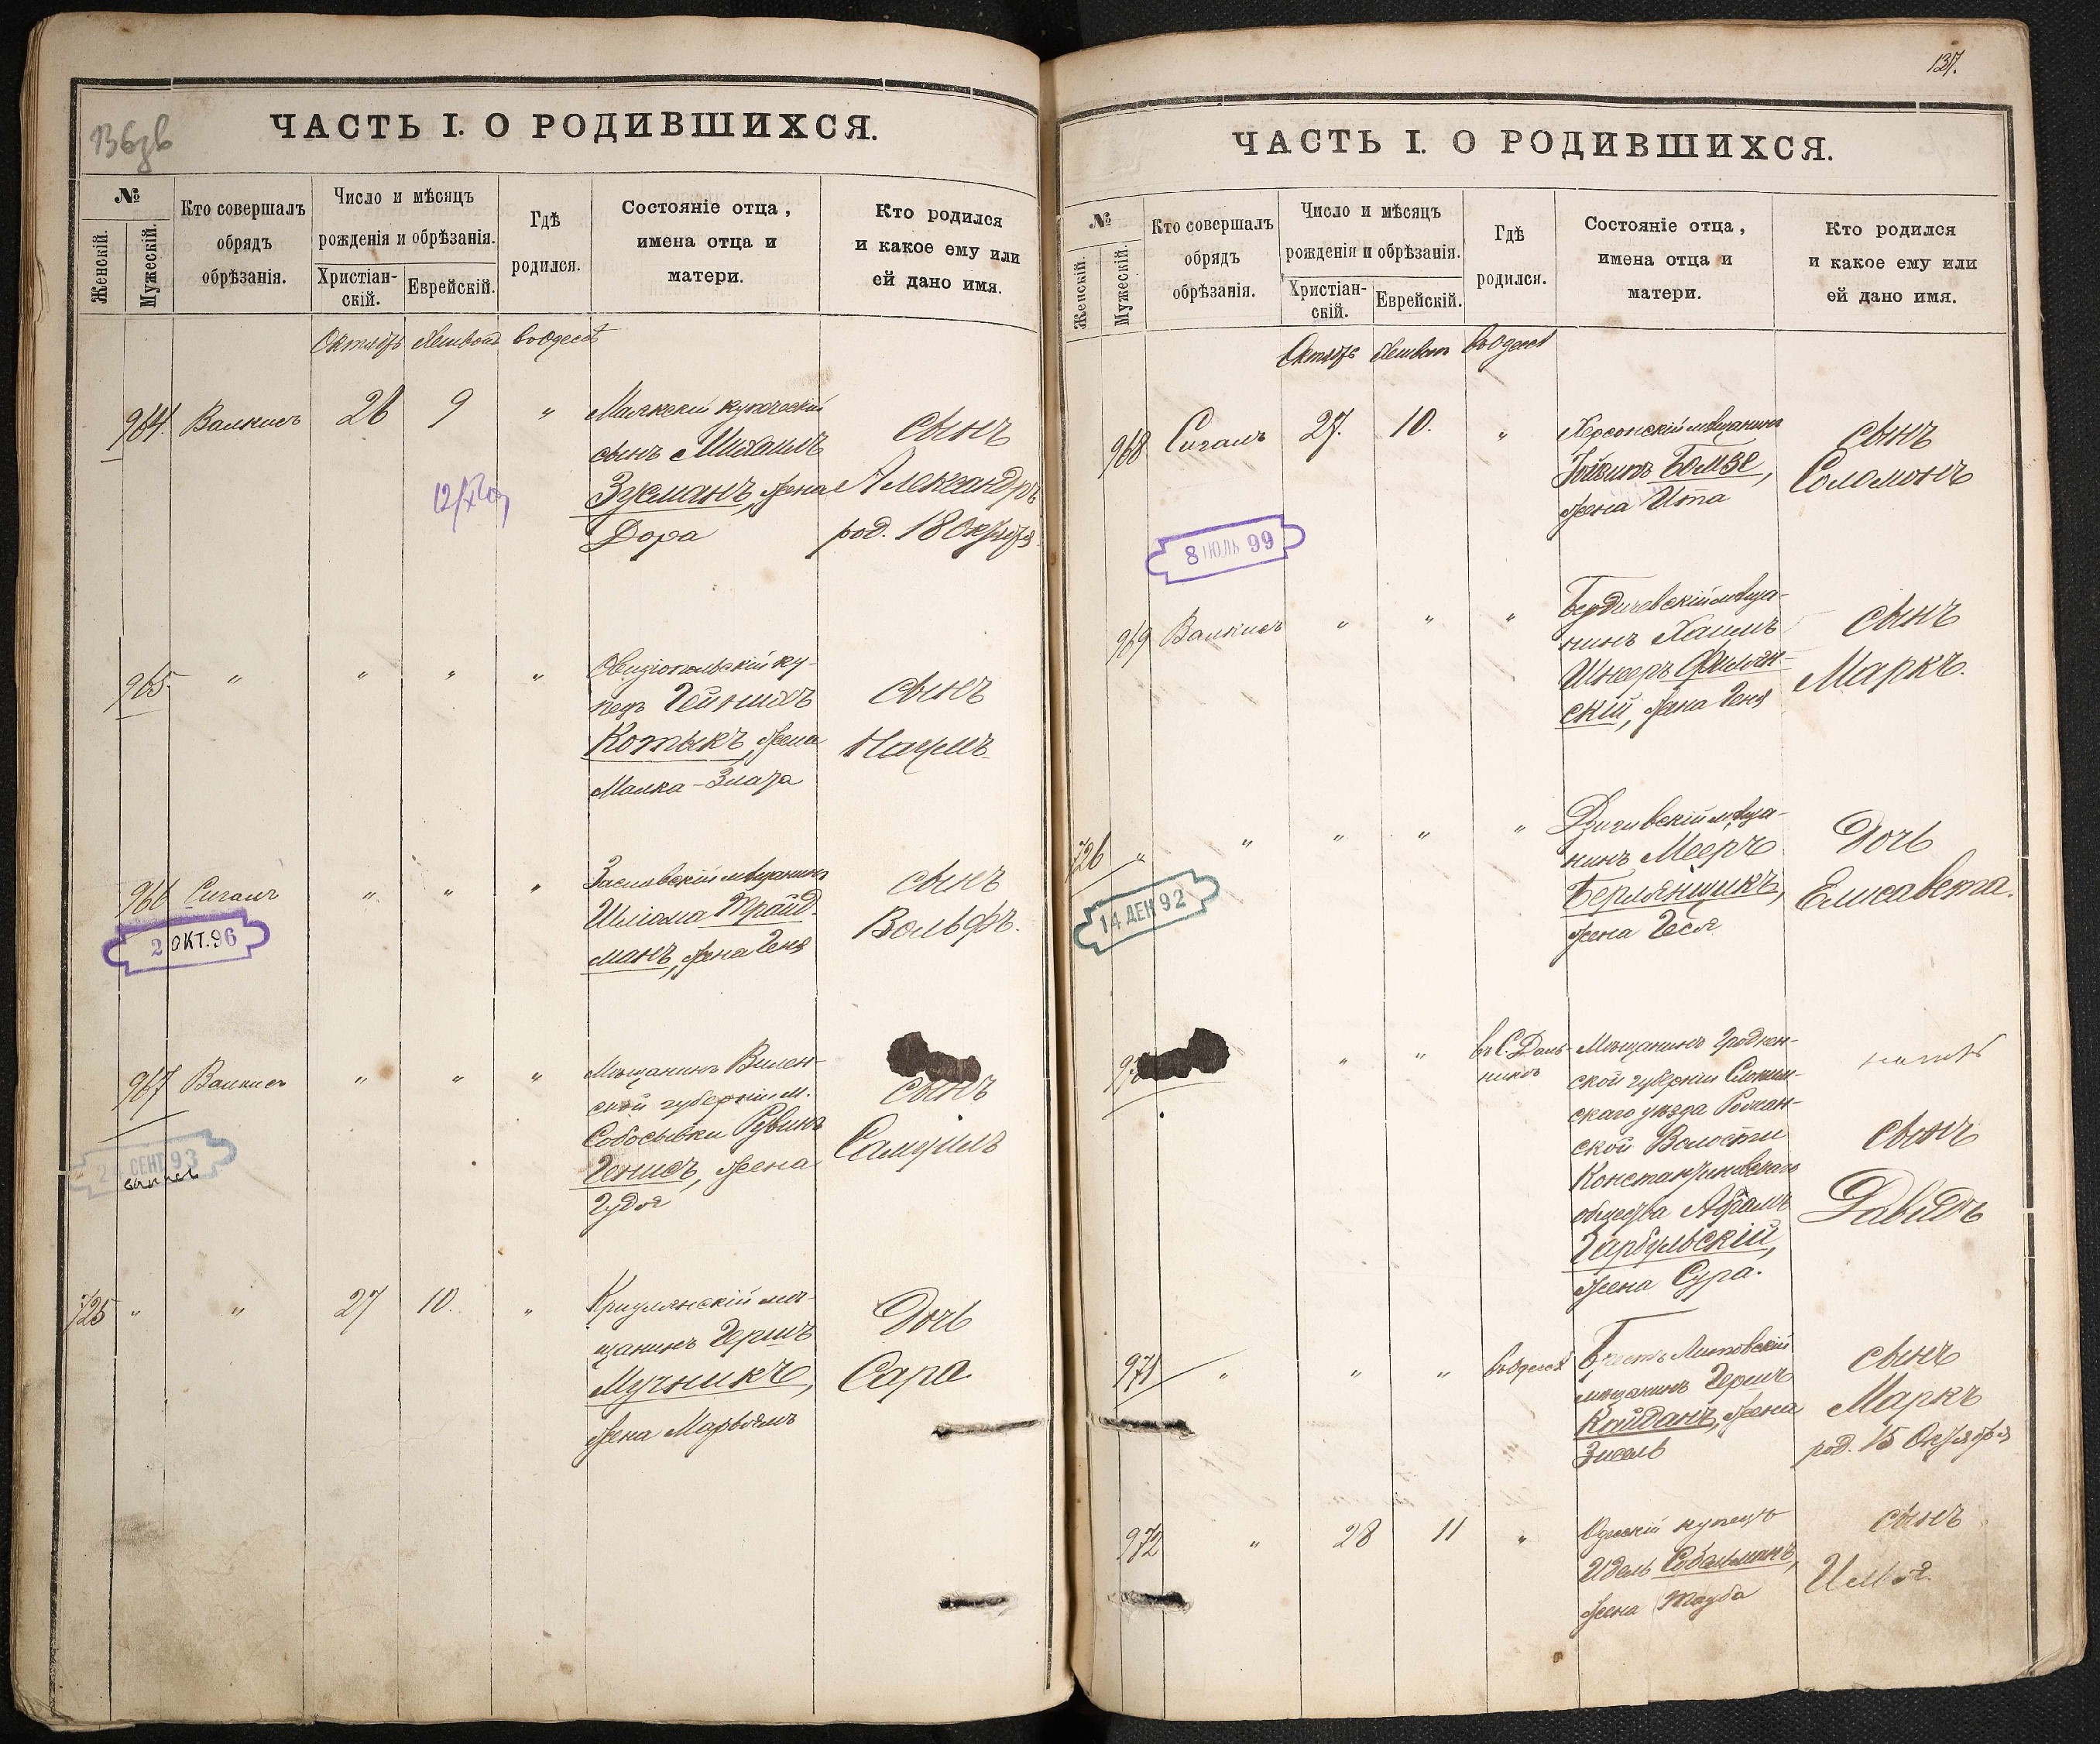 136зв
ЧАСТЬ I. О РОДИВШИХСЯ.
№
Женскій.
Мужескій.
Кто совершалъ
обрядъ
обрѣзанія.
Число и мѣсяцъ
рожденія и обрѣзанія.
Христіан-
скій.
Еврейскій.
Гдѣ
родился.
Состояніе отца,
имена отца и
матери.
Кто родился
и какое ему или
ей дано имя.
Октябрь Хешвонъ въ Одессѣ
964. Валкисъ 26 9 "
Маякскій купеческій
сынъ Михаилъ
Зусманъ, жена
Дора
сынъ
Александръ
род. 18 Октября
965. " " " "
Овидіопольскій ку-
пецъ Гейнихъ
Котыкъ, жена
Малка-Злата
сынъ
Наумъ
966 Сигалъ " " "
Заславскій мѣщанинъ
Шліома Трайд-
манъ, жена Геня
сынъ
Вольфъ.
2 ОКТ. 96
967 Валкисъ " " "
Мѣщанинъ Вилен-
ской губерніи м.
Рувинъ
Генисъ, жена
Гудя
сынъ
Самуилъ
СЕНТ 93
725 " " 27 10. "
Криулянскій мѣ-
щанинъ Гершъ
Мучникъ,
жена
Дочь
Сара
137.
ЧАСТЬ I. О РОДИВШИХСЯ.
№
Женскій.
Мужескій.
Кто совершалъ
обрядъ
обрѣзанія.
Число и мѣсяцъ
рожденія и обрѣзанія.
Христіан-
скій.
Еврейскій.
Гдѣ
родился.
Состояніе отца,
имена отца и
матери.
Кто родился
и какое ему или
ей дано имя.
Октябрь Хешвонъ въ Одессѣ
968 Сигалъ 27. 10. "
Херсонскій мѣщанинъ
Бомзе,
жена Ита
сынъ
Соломонъ
8 ІЮЛЬ 99
969 Валкисъ " " "
Бердичевскій мѣща-
нинъ Хаимъ
Шнееръ
скій, жена Геня
сынъ
Маркъ.
726 " " " " "
мѣща-
нинъ Мееръ
Берлянщикъ,
жена Геся
Дочь
Елисавета.
14 ДЕК 92
" " въ С. Даль-
никѣ
Мѣщанинъ Гроднен-
ской губерніи Слоним-
скаго уѣзда
ской Волости
Константиновскаго
общества Абрамъ
Гарбульскій,
жена Сура.
сынъ
Давидъ
971 " " " въ Одессѣ
Брестъ Литовскій
мѣщанинъ Гершъ
Койданъ, жена
Зисель
сынъ
Маркъ
род. 15 Октября
972 " 28 11 "
Одесскій купецъ
Идель Собельманъ,
жена Тауба
сынъ
Илья.